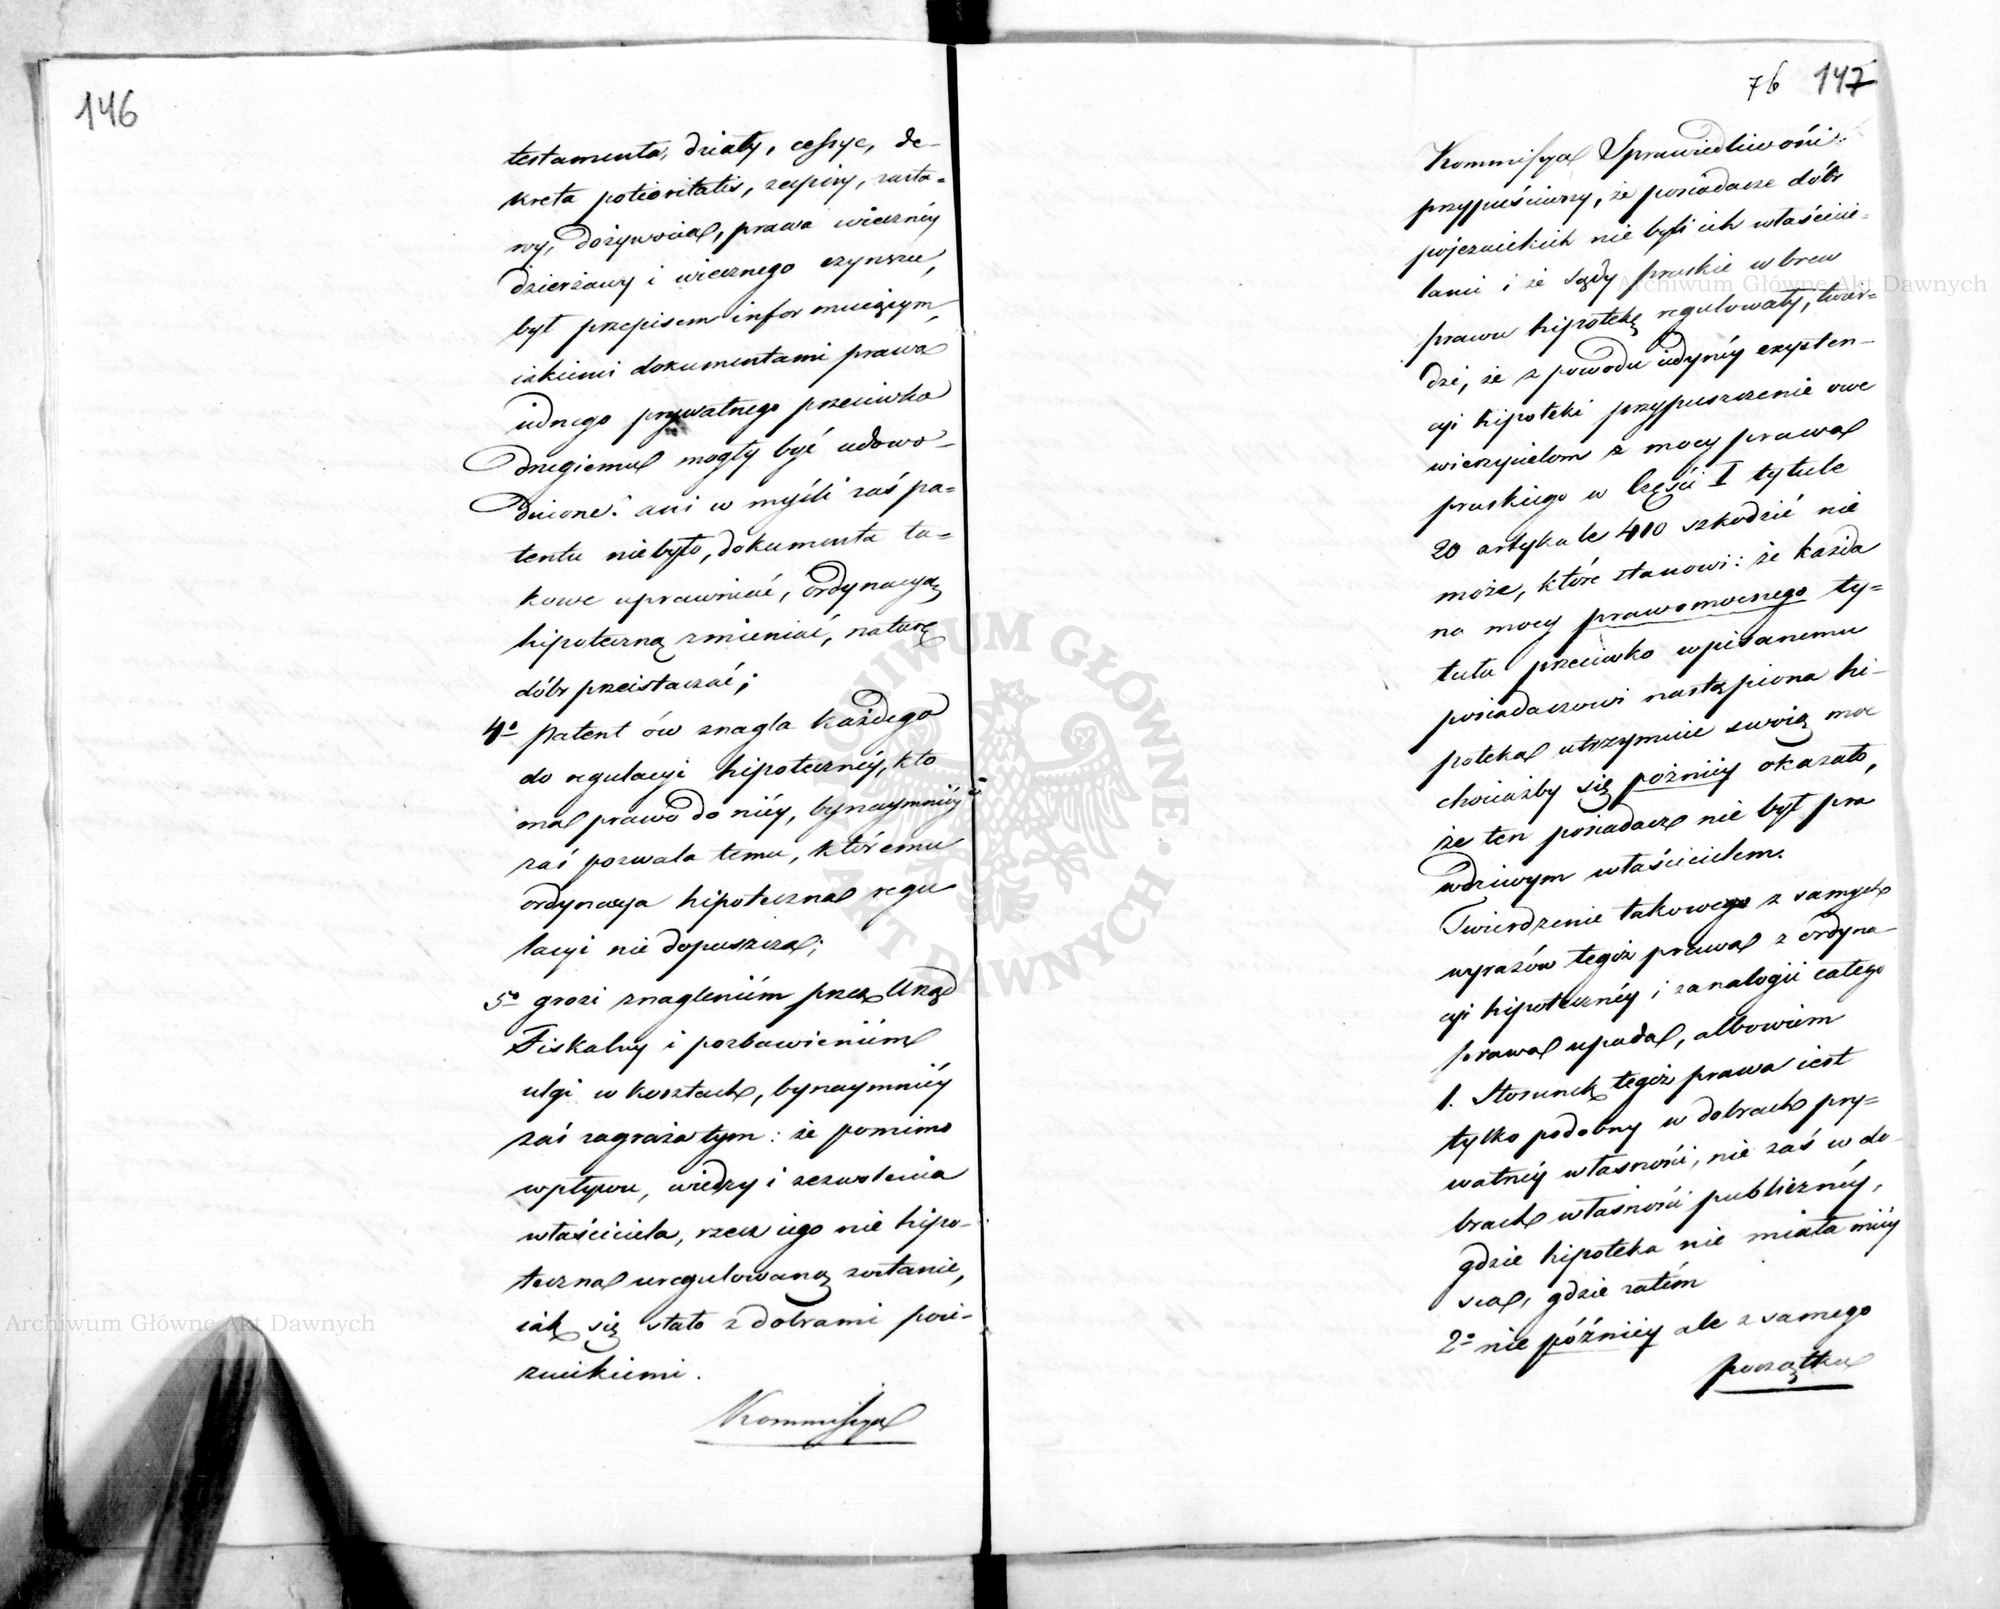 146
testamenta, działy, cessye, de-
kreta potioritatis, zapisy, zasta-
wy, dożywocia, prawa wieczney
dzierżawy i wiecznego czynszu,
był przepisem informuiącym,
iakiemi dokumentami prawa
iednego prywatnego przeciwko
drugiemu mogły być udowo-
dnione: ani w myśli zaś pa-
tentu nie było, dokumenta ta-
kowe uprawniać, ordynacyą
hipoteczną zmieniać, naturę
dóbr przeistaczać;
4o patent ów znagla każdego
do regulacyi hipoteczney, kto
ma prawo do niéy, bynaymniéy
zaś pozwala temu, któremu
ordynacya hipoteczna regu
lacyi nie dopuszcza;
5o grozi znagleniém przez Urząd
Fiskalny i pozbawieniém
ulgi w kosztach, bynaymniéy
zaś zagraża tym: że pomimo
wpływu, wiedzy i zezwolenia
właściciela, rzecz iego nie hipo-
teczna uregulowaną zostanie,
iak się stało z dobrami poie-
zuickiemi.
Kommissya
76 147
Kommissya Sprawiedliwości
przypuściwszy, że posiadacze dóbr
pojezuickich nie byli ich właścicie-
lami i że sądy pruskie wbrew
prawu hipotekę regulowały, twier-
dzi, że z powodu iedynéy exysten-
cyi hipoteki przypuszczenie owe
wierzycielom z mocy prawa
pruskiego w Części I tytule
20 artykule 410 szkodzić nie
może, które stanowi: że każda
na mocy prawomocnego ty-
tułu przeciwko wpisanemu
posiadaczowi nastąpiona hi-
poteka utrzymuie swoią moc
chociażby się pożniéy okazało,
że ten posiadacz nie był pra
wdziwym właścicielem.
Twierdzenie takowe z samych
wyrazów tegoż prawa z ordyna-
cyi hipotecznéy i z analogii całego
prawa upada, albowiem
1. Stosunek tegoż prawa iest
tylko podobny w dobrach pry-
watnéy własności, nie zaś w do-
brach własności publicznéy,
gdzie hipoteka nie miała miéy
sca, gdzie zatém
2o nie późniéy ale z samego
początku
Archiwum Główne Akt Dawnych
Archiwum Główne Akt Dawnych
ARCHIWUM GŁÓWNE AKT DAWNYCH